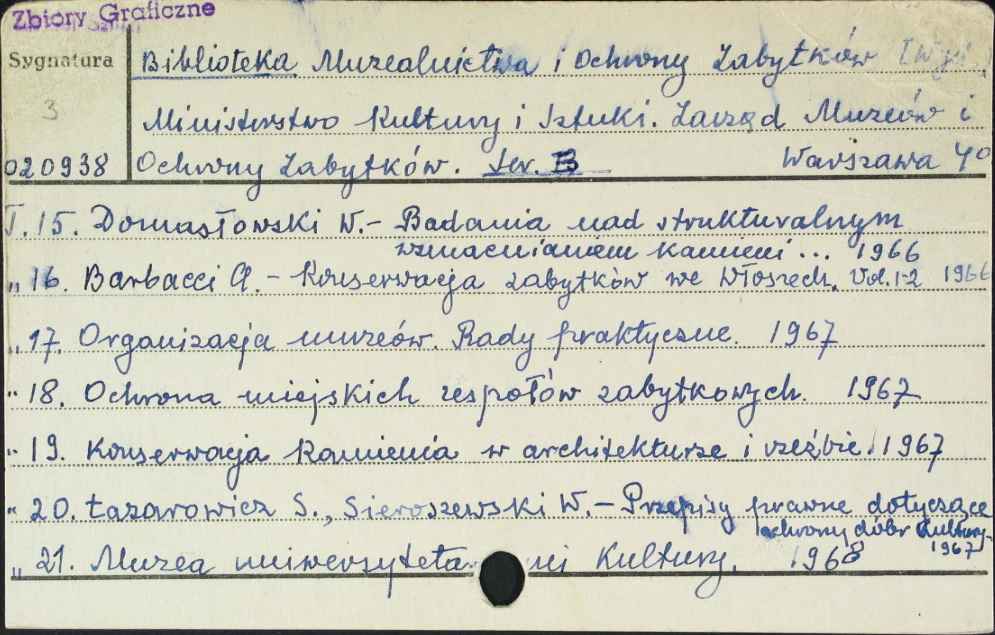 Zbiory Graficzne
Sygnatura
3
020938
Biblioteka Muzealnictwa i Ochrony Zabytków [Wyd.
Ministerstwo Kultury i Sztuki. Zarząd Muzeów i
Ochrony Zabytków. Ser. B Warszawa 4°
T. 15. Domasłowski W. - Badania nad strukturalnym
wzmacnianiem kamieni ... 1966
„ 16. Barbacci A. - Konserwacja zabytków we Włoszech. Vol. 1-2 1966
„ 17. Organizacja muzeów. Rady praktyczne. 1967
„ 18. Ochrona miejskich zespołów zabytkowych. 1967
„ 19. Konserwacja kamienia w architekturze i rzeźbie. 1967
„ 20. Łazarowicz S., Sieroszewski W. - Przepisy prawne dotyczące
ochrony dóbr kultury. 1967
„ 21. Muzea uniwersytetami kultury. 1968